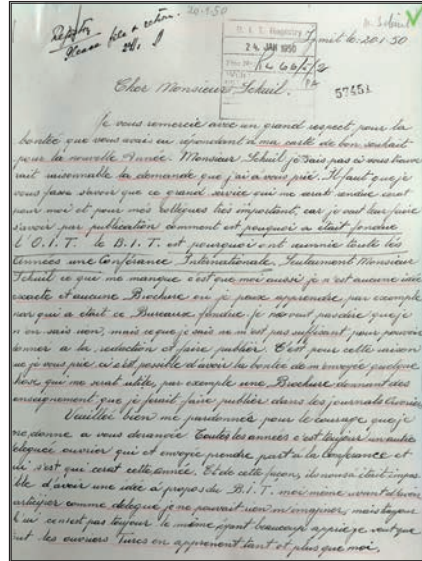 20.1.50
Registry
Please file & return.
B. I. T. Registry
Izmit le: 20.1.50
24. JAN 1950
57451
Cher Monsieur Schuil.
Je vous remercie avec un grand respect, pour la
bontée que vous avais eu répondant à ma carté de bon souhait
pour la nouvelle Année. Monsieur Schuil je sais pas si vous trouve
rait raisonnable la demande que j'ai à vous prié. Il faut que je
vous fassa savoir que ce grand service qui me serat rendue serat
pour moi et pour més collègues très important, car je veut leur faire
savoir par publication comment est pourquoi a était fondue
l'O.I.T. le B.I.T. est pourquoi ont reunnie toute lés
Années une Conférance Internationale. Seulament Monsieur
Schuil ce qui me manque c'est que moi aussi je n'est aucune idée
exacte et aucune Brochure ou je peux apprendre, par exemple
par qui a était ce Bureaux fondue, je ne veut pas dire que je
n'en sais rien, mais ce que je sais ne m'est pas suffisant pour pouvoir
donner a la redaction et faire publier. C'est pour cette raison
que je vous prie si s'est possible d'avoir la bontée de m'envoyé quelque
chose qui me serait utile, par exemple une Brochure donnant des
enseignement que je ferait faire publier dans les journals Ouvrier
Veuillez bien me pardonnér pour le courage que je
me donne a vous derangé. Toutes les années c'est toujour un autre
delegués ouvrier qui et envoyé prendre part à la Conférance et
qui serat cette année. Et de cette façon, il nous à était impos
ble d'avoir une idée à propos du B.I.T. moi même avant d'avoir
articiper comme delegué je ne pouvait rien m'imaginer, mais toujour
c'est pas toujour le même ayant beaucoup
les ouvriers Turcs en apprenent tant et plus que moi.